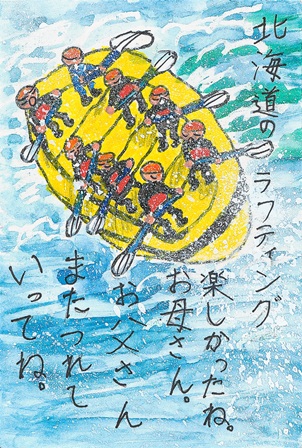 北海道のラフティング
楽しかったね。
お母さん。
お父さん
またつれて
いってね。